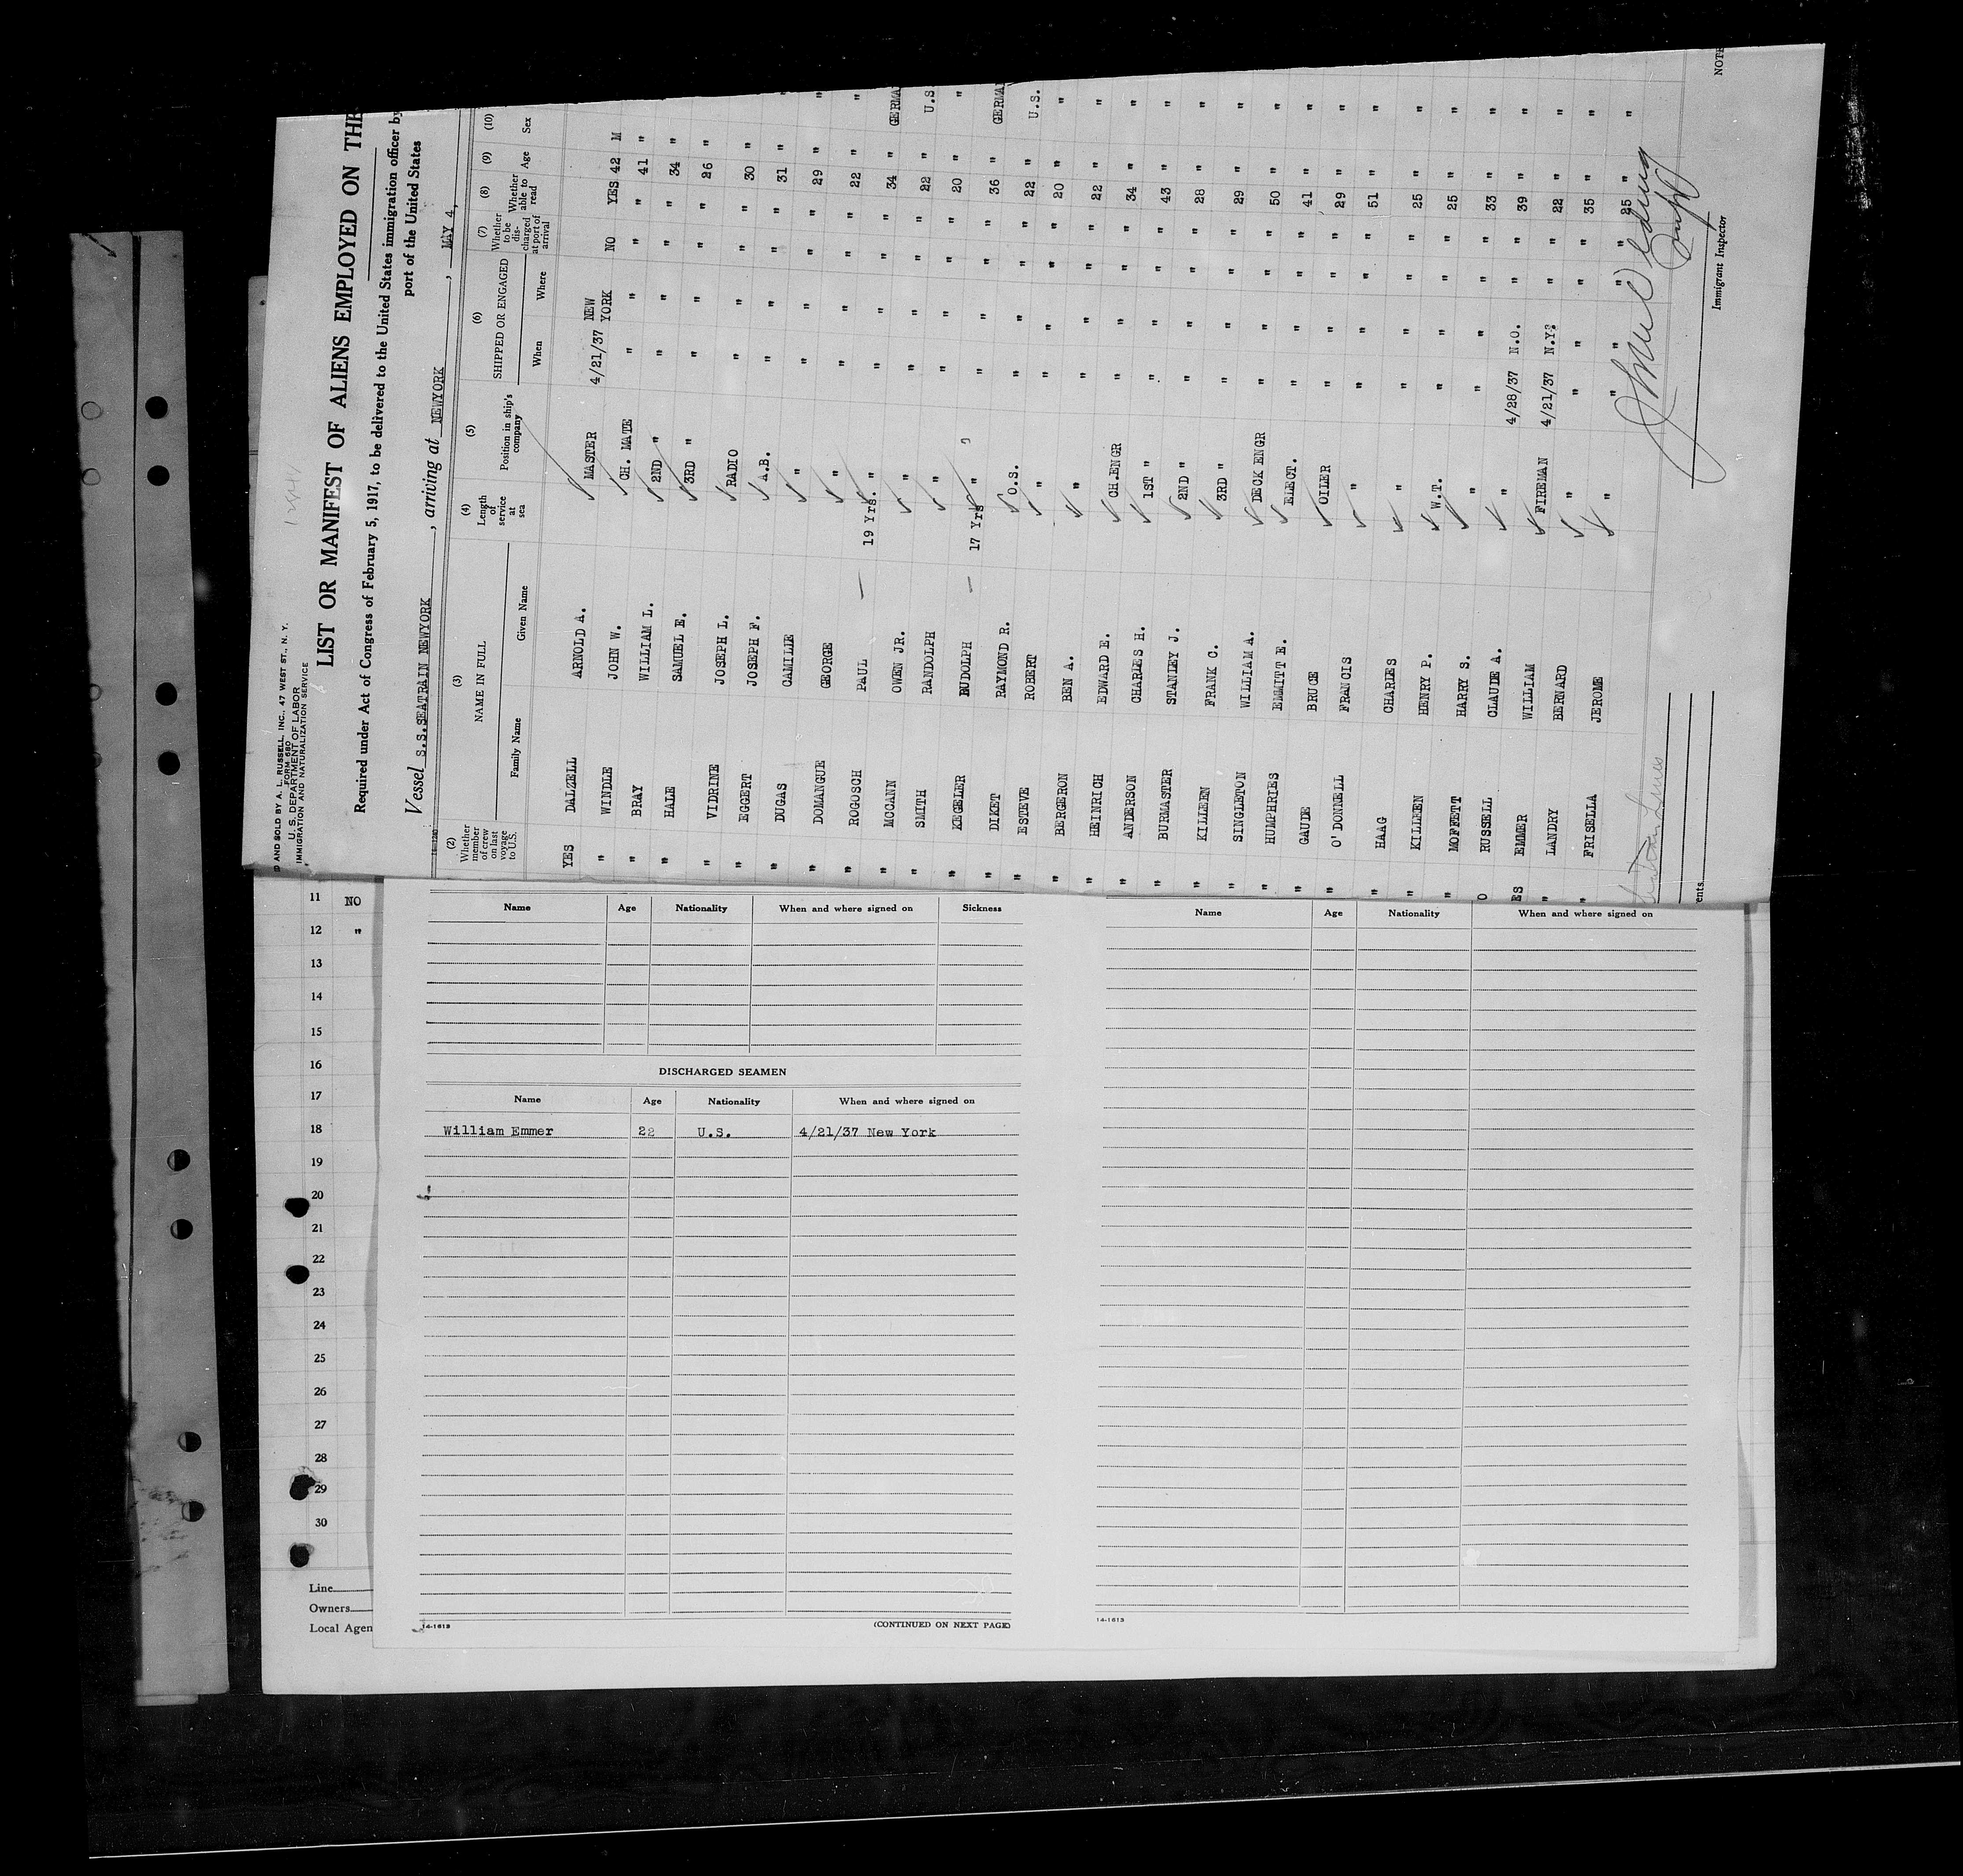 D AND SOLD BY A. L. RUSSELL, INC., 47 WEST ST., N. Y.
FORM 680
U. S. DEPARTMENT OF LABOR
IMMIGRATION AND NATURALIZATION SERVICE
LIST OR MANIFEST OF ALIENS EMPLOYED ON THE
Required under Act of Congress of February 5, 1917, to be delivered to the United States immigration officer by
port of the United States
Vessel S.S.SEATRAIN NEWYORK, arriving at NEWYORK, MAY 4,
(2) Whether member of crew on last voyage to U.S. (3) NAME IN FULL Family Name Given Name (4) Length of service at sea (5) Position in ship's company (6) SHIPPED OR ENGAGED When Where (7) Whether to be discharged at port of arrival (8) Whether able to read (9) Age (10) Sex
YES DALZELL ARNOLD A. MASTER 4/21/37 NEW YORK NO YES 42 M
" WINDLE JOHN W. CH. MATE " " " " 41 "
" BRAY WILLIAM L. 2ND " " " " " 34 "
" HALE SAMUEL E. 3RD " " " " " 26 "
" VIDRINE JOSEPH L. RADIO " " " " 30 "
" EGGERT JOSEPH F. A.B. " " " " 31 " "
" DUGAS CAMILLE " " " " " 29 " "
" DOMANGUE GEORGE " " " " " 22 " "
" ROGOSCH PAUL 19 Yrs. " " " " " 34 " GERMA
" MCCANN OWEN JR. " " " " " 22 " U.S
" SMITH RANDOLPH " " " " " 20 " "
" KEGELER RUDOLPH 17 Yrs " " " " " 36 " GERMA
" DIKET RAYMOND R. O.S. " " " " 22 " U.S.
" ESTEVE ROBERT " " " " " 20 " "
" BERGERON BEN A. " " " " " 22 " "
" HEINRICH EDWARD E. CH.ENGR " " " " 34 " "
" ANDERSON CHARLES H. 1ST " " " " " 43 " "
" BURMASTER STANLEY J. 2ND " " " " " 28 " "
" KILLEEN FRANK C. 3RD " " " " " 29 " "
" SINGLETON WILLIAM A. DECK ENGR " " " " 50 " "
" HUMPHRIES EMMIT E. ELECT. " " " " 41 " "
" GAUDE BRUCE OILER " " " " 29 " "
" O'DONNELL FRANCIS " " " " " 51 " "
" HAAG CHARLES " " " " " 25 " "
" KILLEEN HENRY P. W.T. " " " " 25 " "
" MOFFETT HARRY S. " " " " " 33 " "
O RUSSELL CLAUDE A. " 4/28/37 N.O. " " 39 " "
ES EMMER WILLIAM FIREMAN 4/21/37 N.Y. " " 22 " "
" LANDRY BERNARD " " " " " 35 " "
" FRISELLA JEROME " " " " " 25 " "
Immigrant Inspector
NOTE
ents
11 NO
12 "
13
14
15
16
17
18
19
20
21
22
23
24
25
26
27
28
29
30
Line
Owners
Local Agen
Name Age Nationality When and where signed on Sickness
DISCHARGED SEAMEN
Name Age Nationality When and where signed on
William Emmer 22 U.S. 4/21/37 New York
14-1613 (CONTINUED ON NEXT PAGE)
Name Age Nationality When and where signed on
14-1613